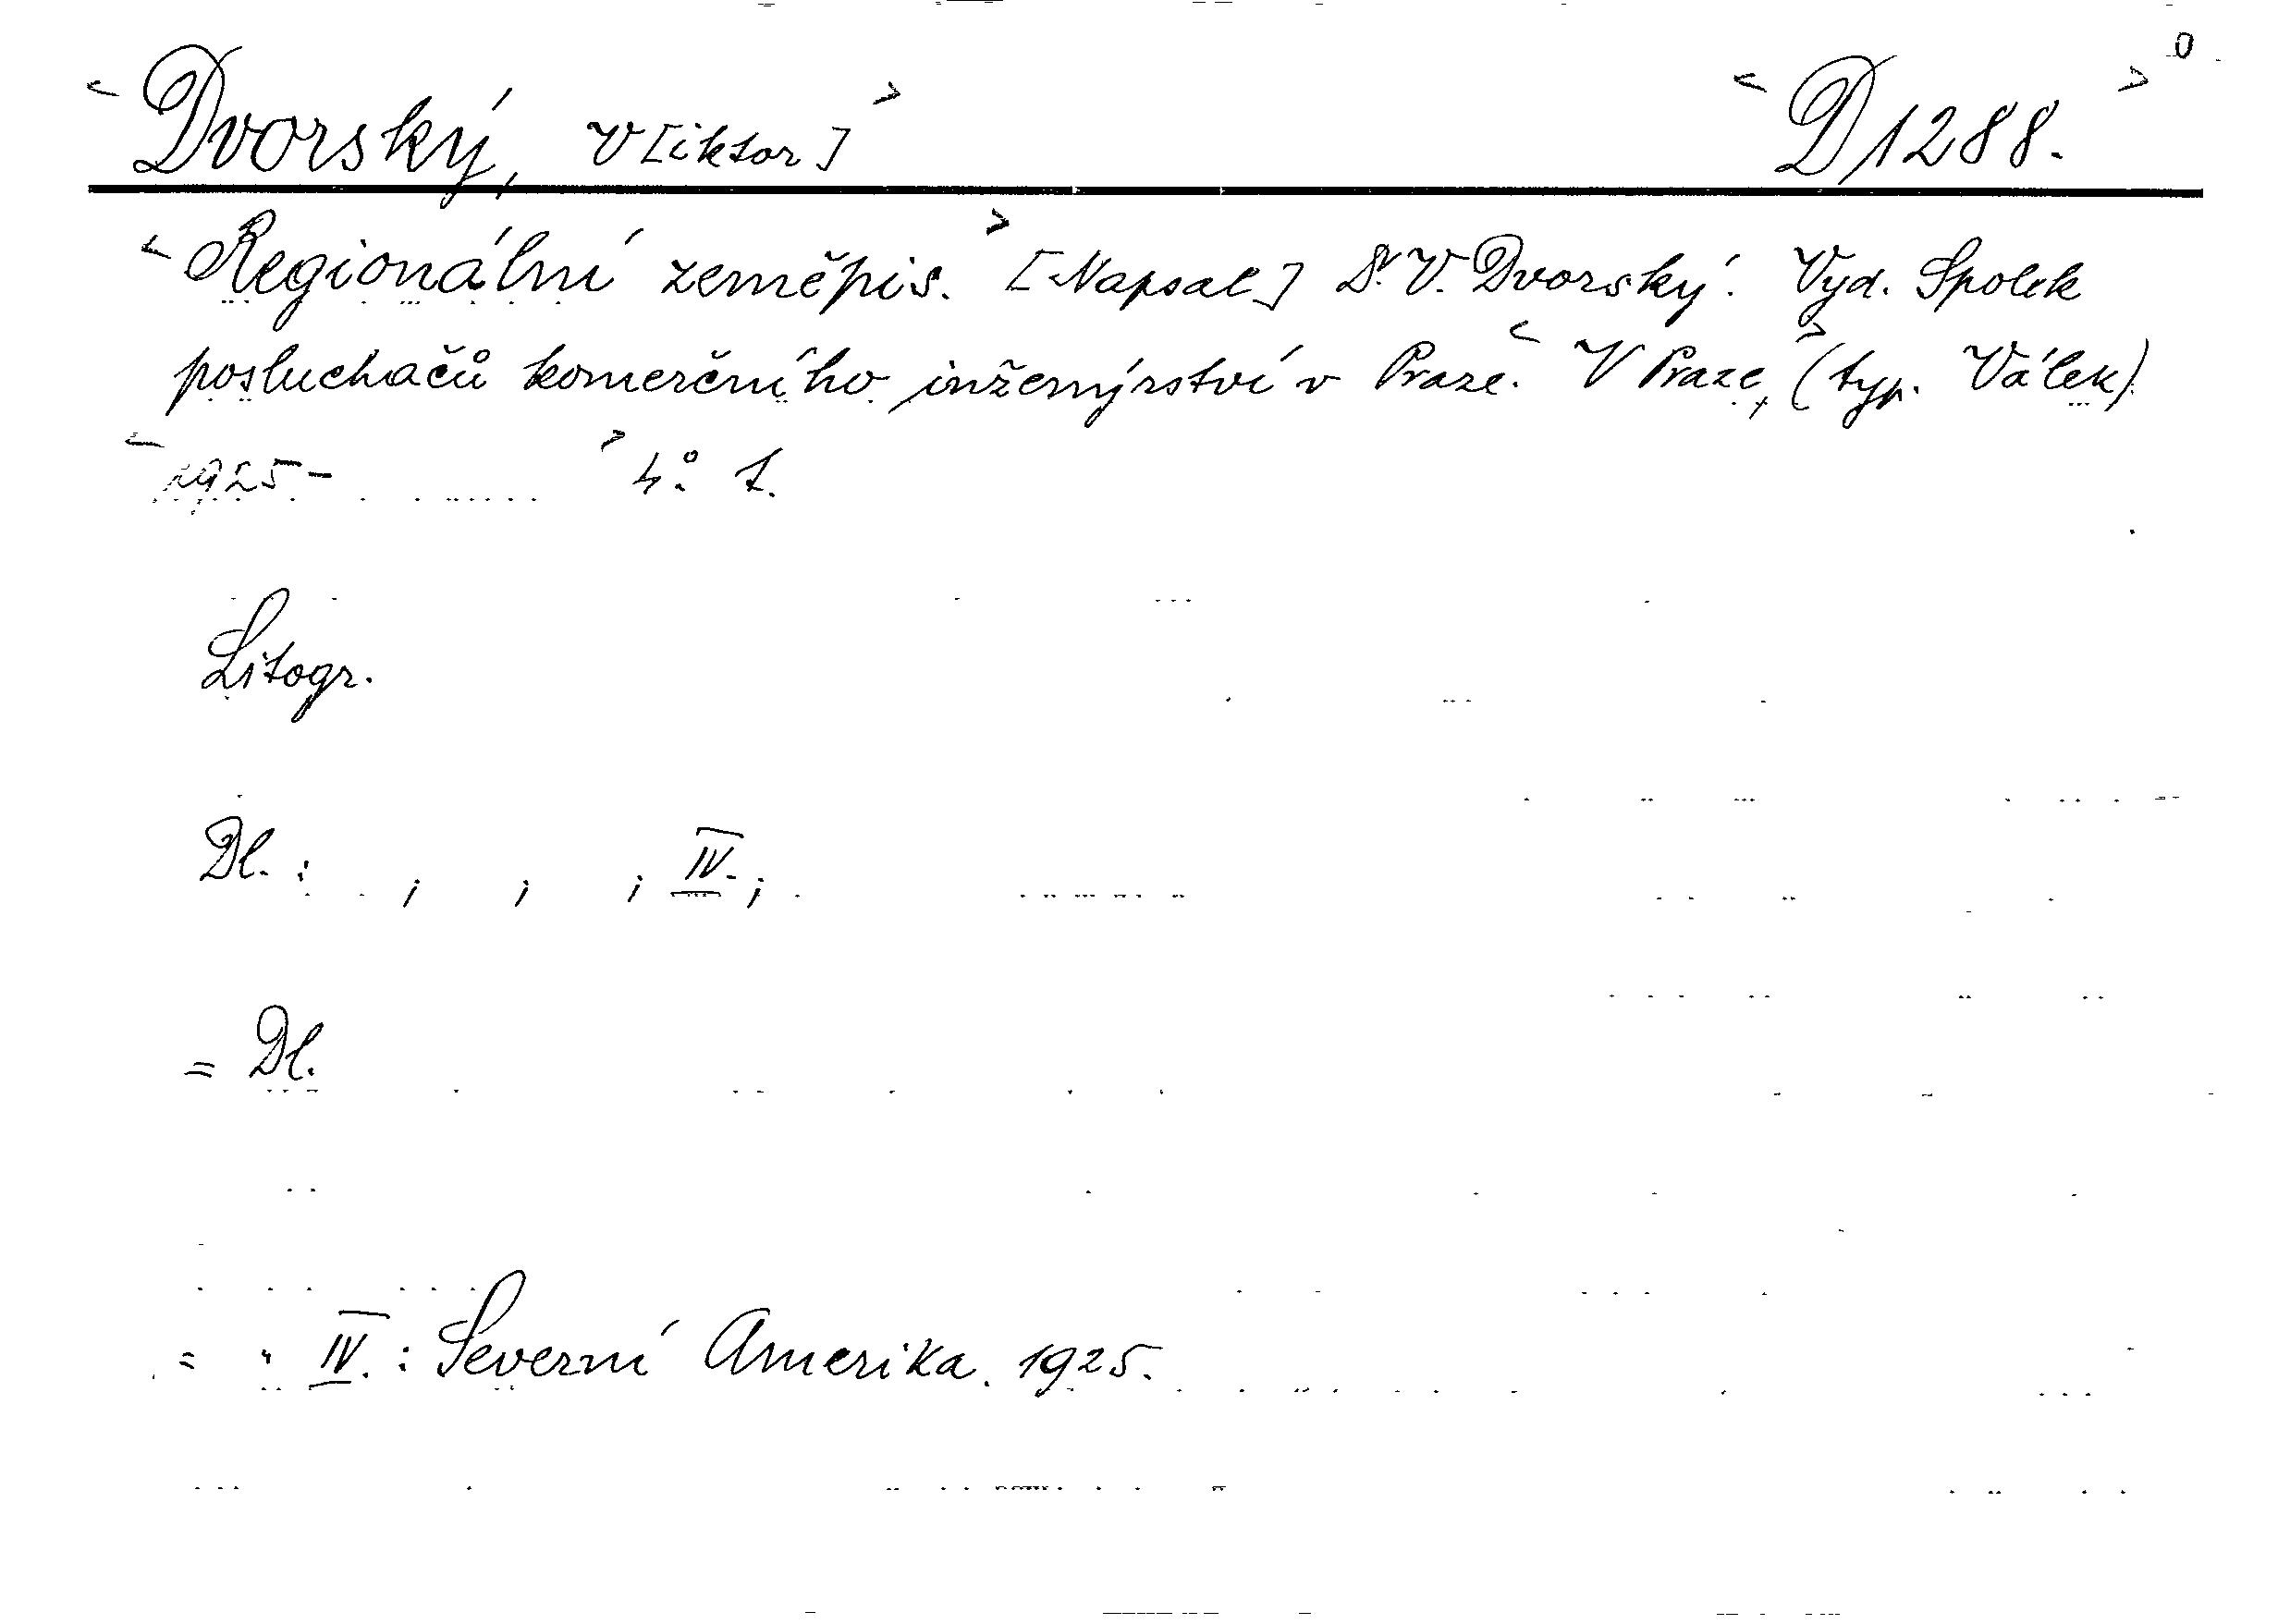 <Dvorský, V[iktor]> <D1288.> 0
<Regionální zeměpis.> [Napsal] Dr. V. Dvorský. Vyd. Spolek
posluchačů komerčního inženýrství v Praze. <V Praze,> (typ. Válek)
<1925- > 4° 1.
Litogr.
Dl. : ; ; ; IV. ;
= Dl.
= " IV. : Severní Amerika. 1925.